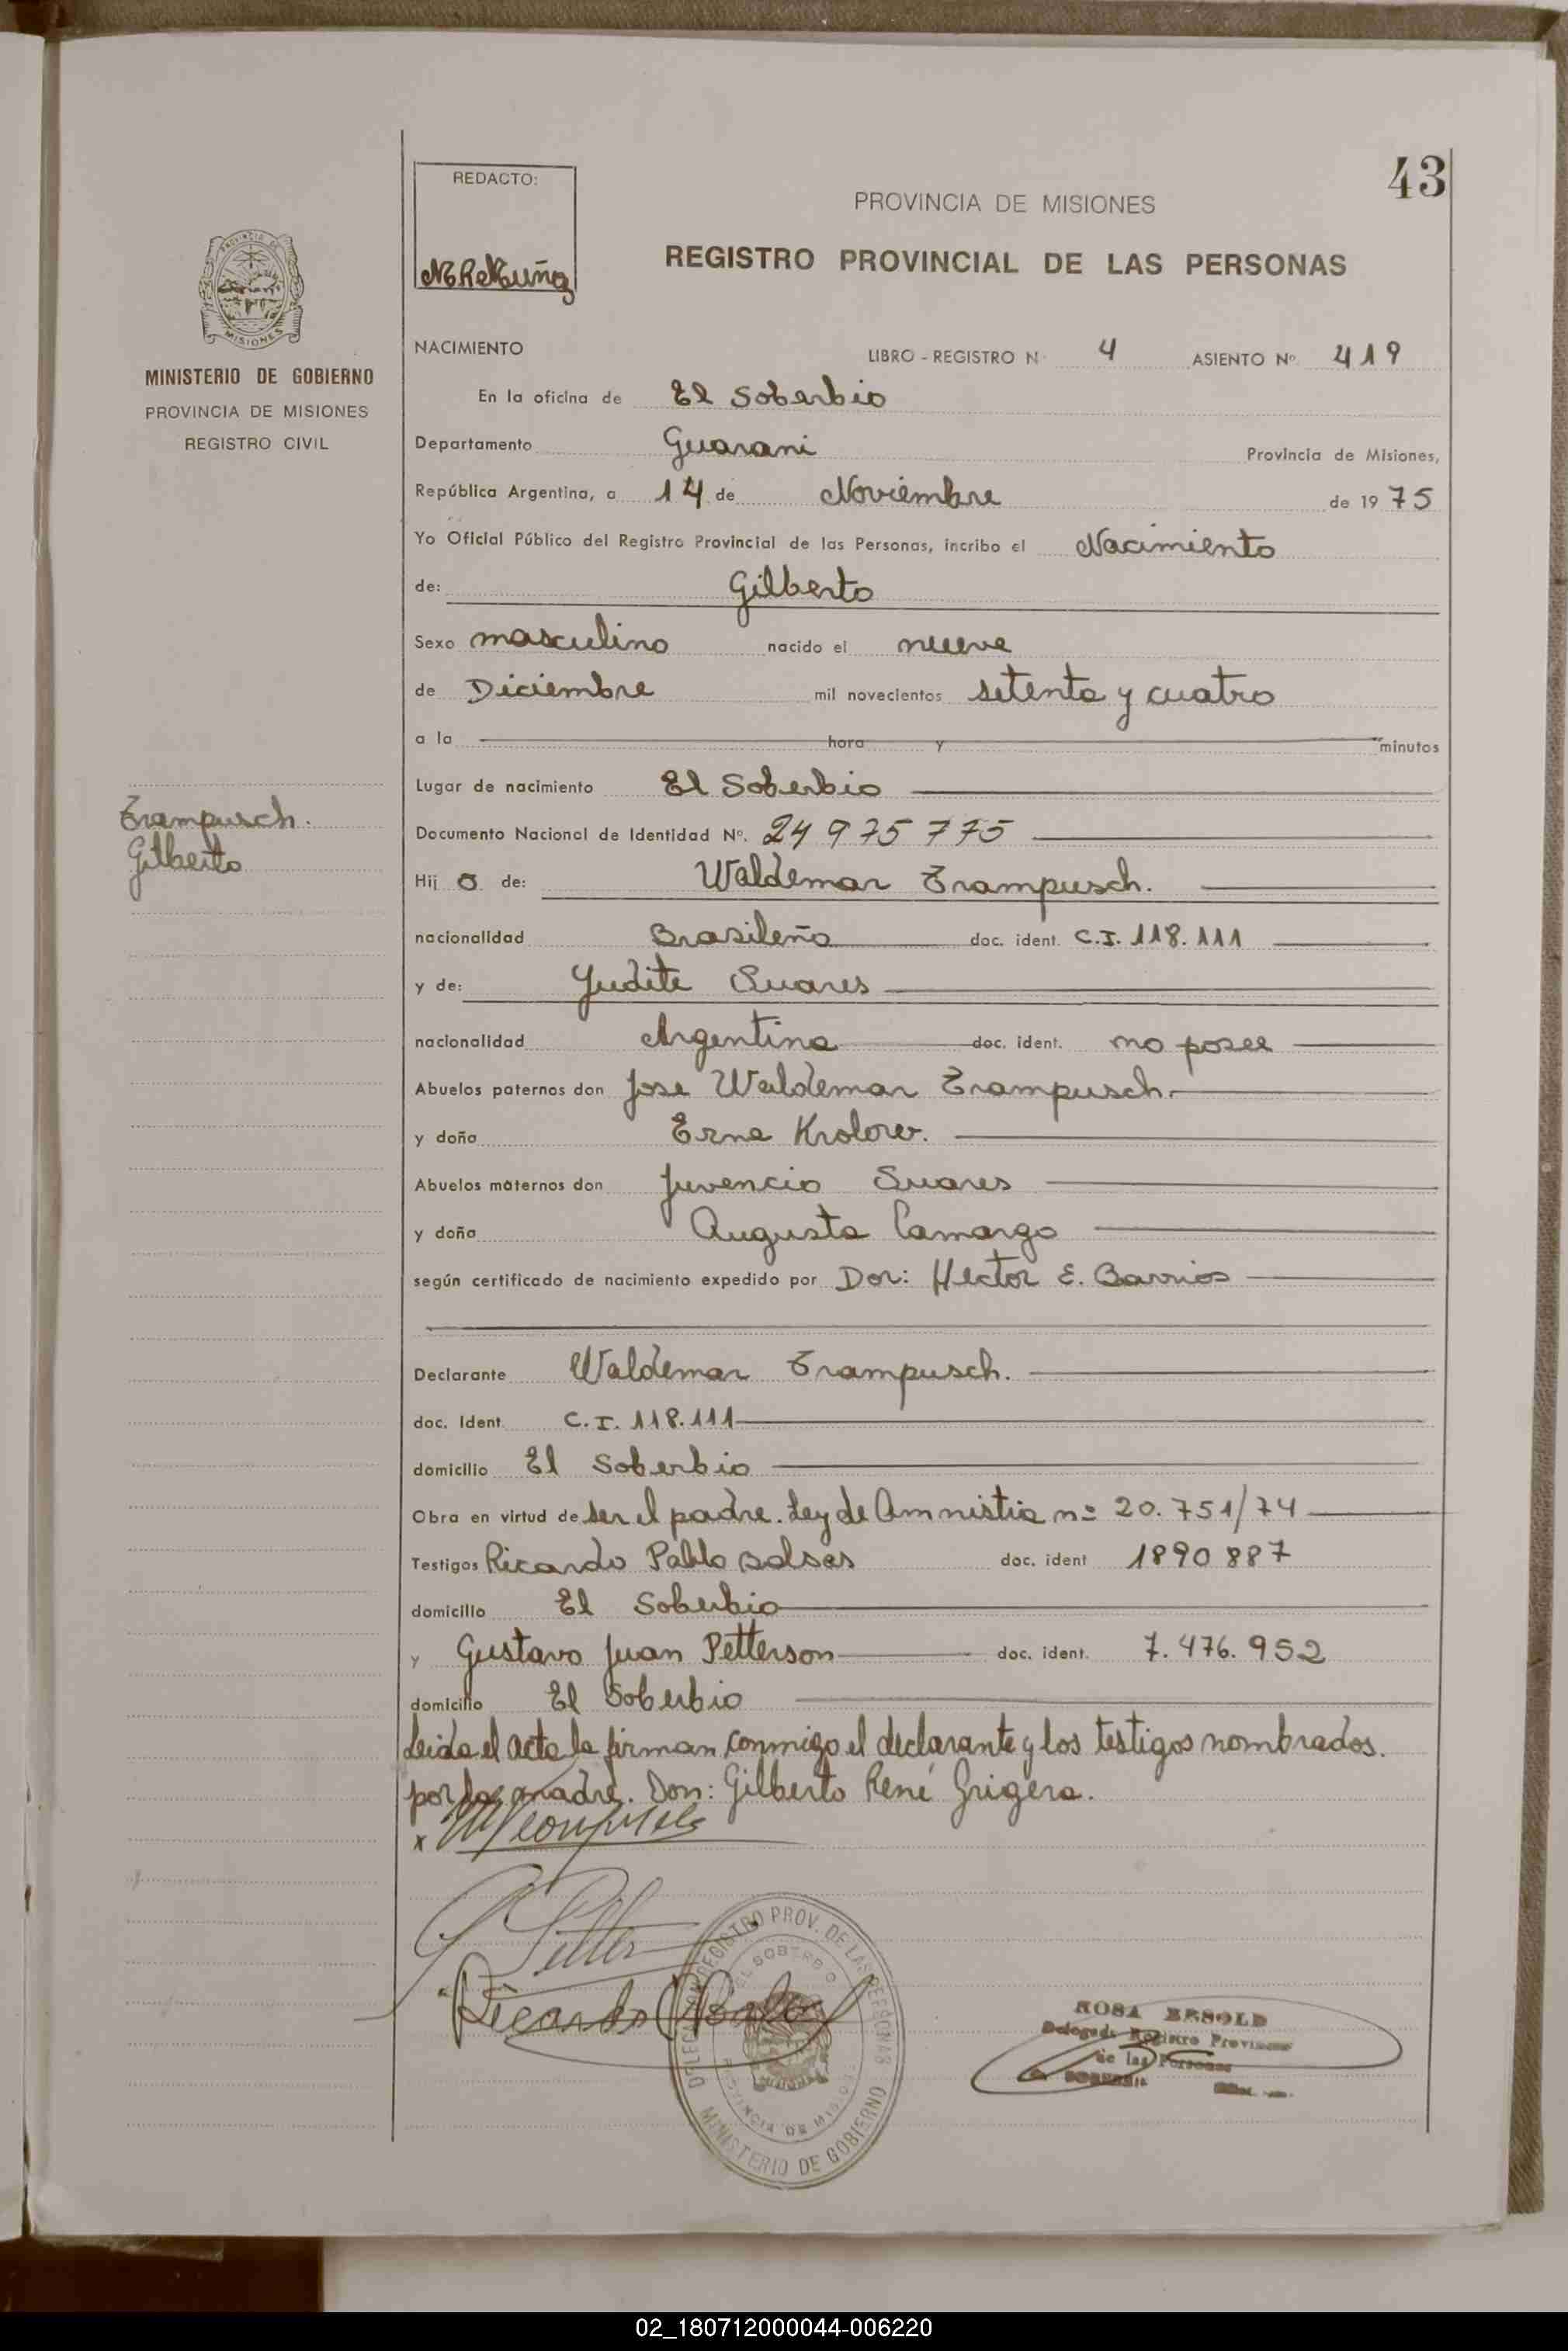 43
REDACTO:
PROVINCIA DE MISIONES
REGISTRO PROVINCIAL DE LAS PERSONAS
PROVINCIA DE
MISIONES
MINISTERIO DE GOBIERNO
PROVINCIA DE MISIONES
REGISTRO CIVIL
NACIMIENTO LIBRO - REGISTRO N° 4 ASIENTO Nº 419
En la oficina de El Soberbio
Departamento Guarani Provincia de Misiones,
República Argentina, a 14 de Noviembre de 1975
Yo Oficial Público del Registro Provincial de las Personas, incribo el Nacimiento
de: Gilberto
Sexo masculino nacido el nueve
de Diciembre mil novecientos setenta y cuatro
a la hora y minutos
Lugar de nacimiento El Soberbio
Trampusch.
Gilberto
Documento Nacional de Identidad Nº. 24 975 775
Hij o de: Waldemar Trampusch.
nacionalidad Brasileño doc. ident. C.I. 118.111
y de: Judite Suares
nacionalidad Argentina doc. ident. no posee
Abuelos paternos don Jose Waldemar Trampusch.
y doña Erna Krolow.
Abuelos maternos don Juvencio Suares
y doña Augusta Camargo
según certificado de nacimiento expedido por Dor: Hector E. Barrios
Declarante Waldemar Trampusch.
doc. Ident C.I. 118.111
domicilio El Soberbio
Obra en virtud de ser el padre. Ley de Amnistia nº 20.751/74
Testigos Ricardo Pablo doc. ident 1890887
domicilio El Soberbio
y Gustavo Juan Petterson doc. ident. 7.476.952
domicilio El Soberbio
Leida el acta la firman conmigo el declarante y los testigos nombrados.
por la madre. Don: Gilberto René Grigera.
x
Ricardo
DELEGACION REGISTRO PROV. DE LAS PERSONAS
EL SOBERBIO
PROVINCIA DE MISIONES
MINISTERIO DE GOBIERNO
ROSA BESOLD
Delegada Registro Provincial
de las Personas
02_180712000044-006220